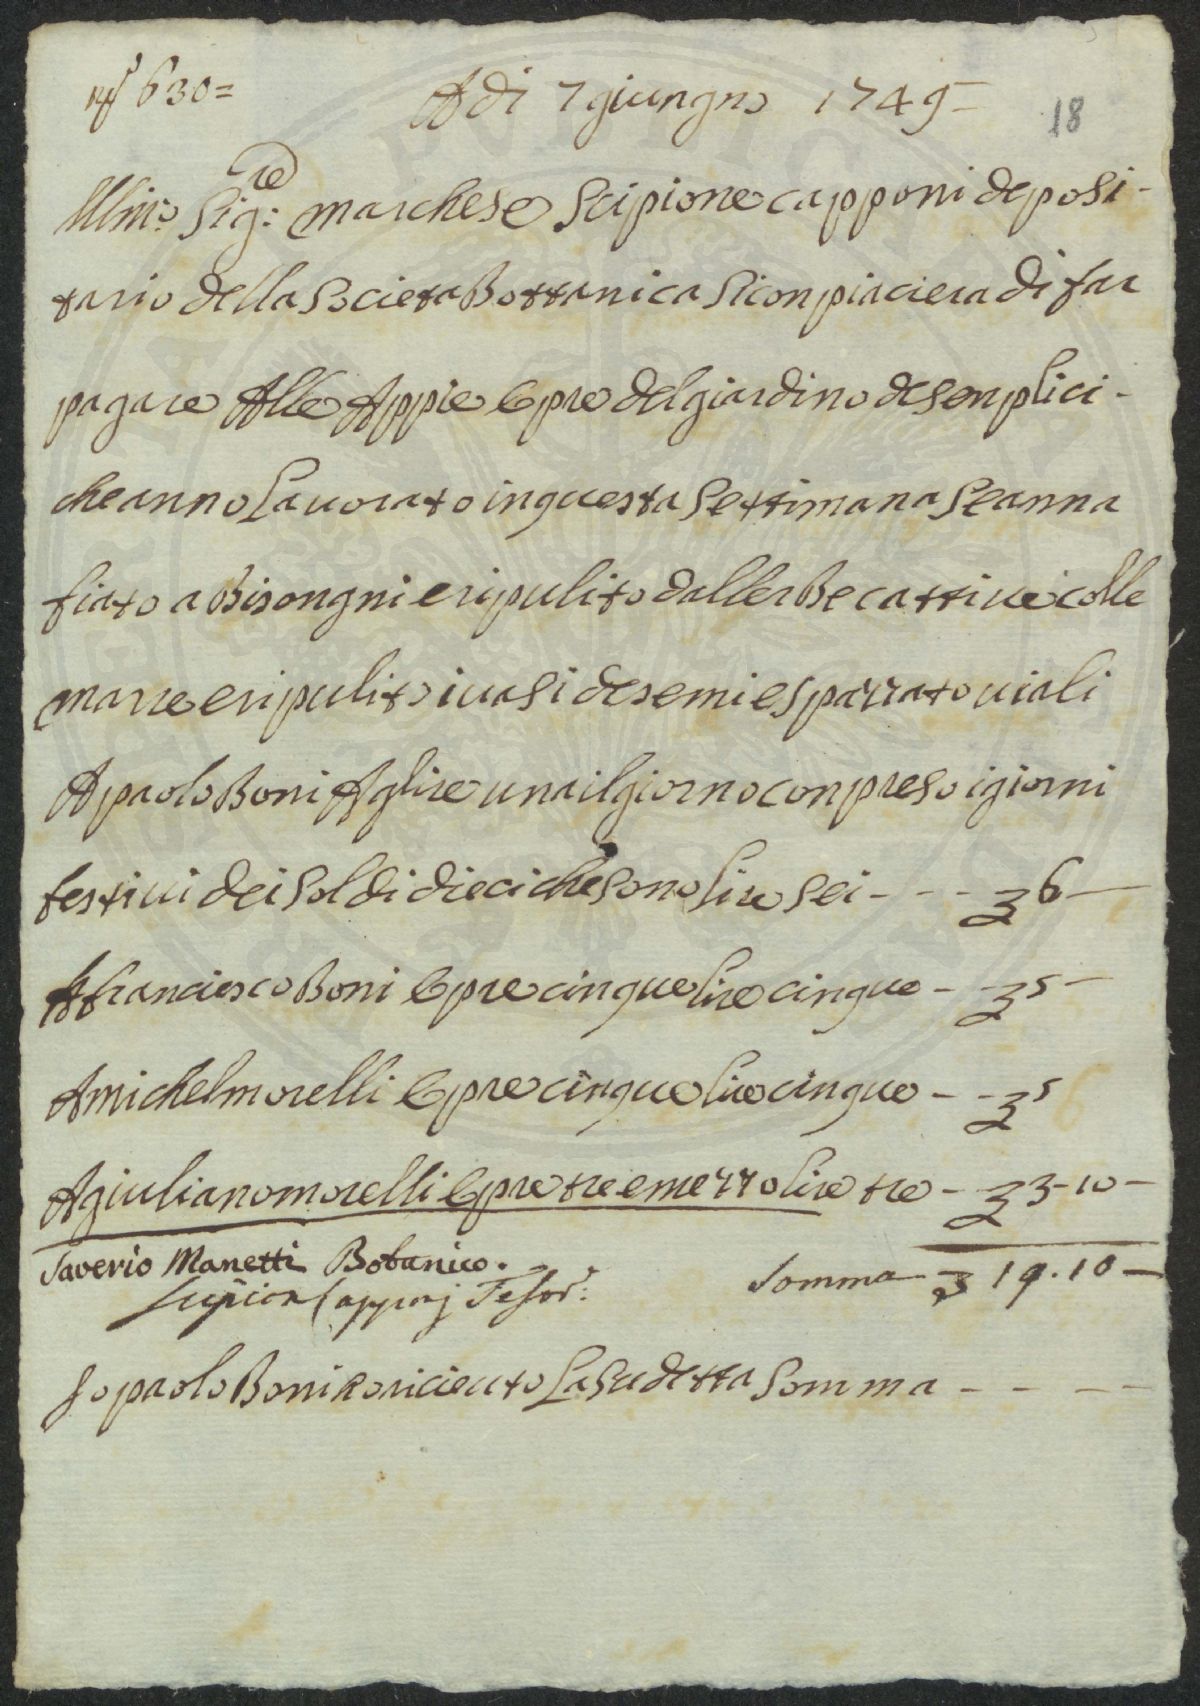 N° 630=
A di 7 giungno 1749 =
18
Illmo: Sig:re marchese Scipione capponi deposi-
tario della Societa Bottanica Si conpiaciera di far
pagare Alle Appie Opre del giardino de senplici-
che anno Lavorato in questa Settimana Se anna
fiato a Bisongni e ripulito dallerbe cattive colle
marre e ripulito i vasi de semi e spazzato viali
A paolo Boni A glire una il giorno conpreso i giorni
festivi dei Soldi dieci che sono lire Sei - - - 6 -
A franciesco Boni Opre cinque lire cinque - - 5 -
A michel morelli Opre cinque lire cinque - - 5
A giuliano morelli Opre tre e mezzo lire tre - 3-10-
Saverio Manetti Botanico.
Somma - 19.10 -
Scipion Capponj Tesor:
Io paolo Boni Ro riceuto La Sudetta Somma - - - -